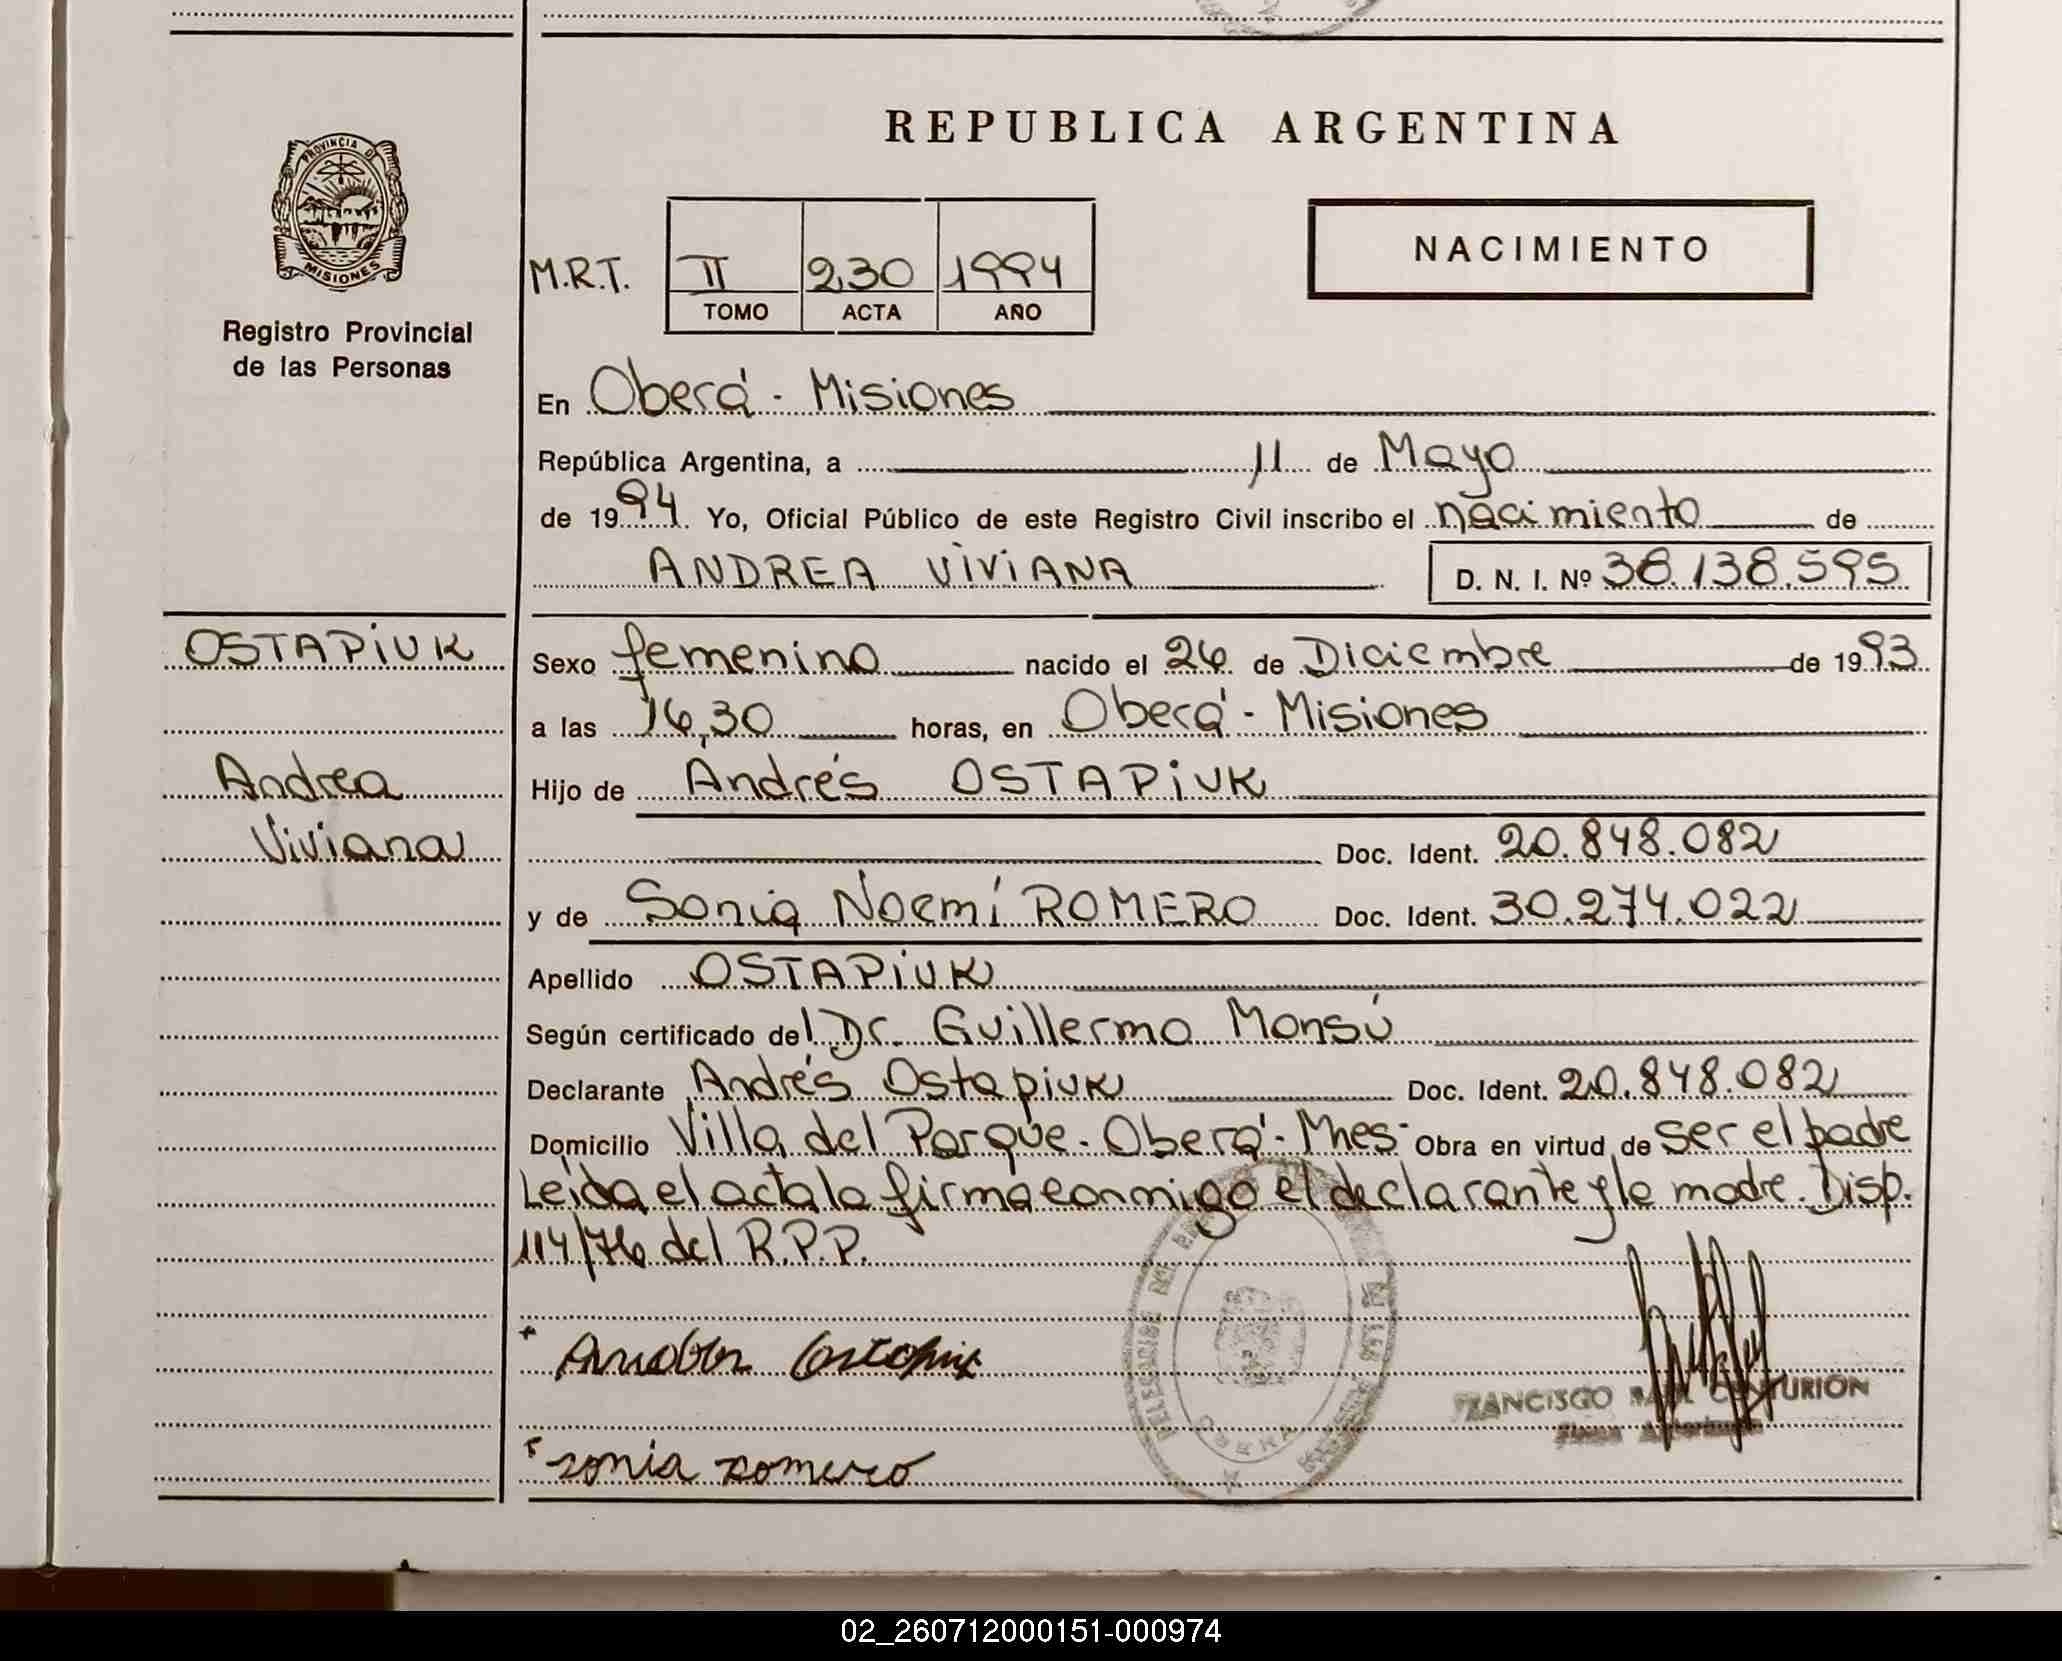 REPUBLICA ARGENTINA
PROVINCIA DE
MISIONES
Registro Provincial
de las Personas
M.R.T. II 230 1994
TOMO ACTA AÑO
NACIMIENTO
En Oberá - Misiones
República Argentina, a 11 de Mayo
de 1994 Yo, Oficial Público de este Registro Civil inscribo el nacimiento de
ANDREA ViViANA D. N. I. Nº 38.138.595
OSTAPiUK
Sexo femenino nacido el 26 de Diciembre de 1993
a las 16,30 horas, en Oberá - Misiones
Andrea
Hijo de Andrés OSTAPiUK
Viviana
Doc. Ident. 20.848.082
y de Sonia Noemí ROMERO Doc. Ident. 30.274.022
Apellido OSTAPiUK
Según certificado del Dr. Guillermo Monsú
Declarante Andrés Ostapiuk Doc. Ident. 20.848.082
Domicilio Villa del Parque - Oberá - Mnes - Obra en virtud de ser el padre
Leída el acta la firma conmigo el declarante y la madre. Disp.
114/76 del R.P.P.
FRANCISCO RAUL CENTURIÓN
sonia romero
02_260712000151-000974